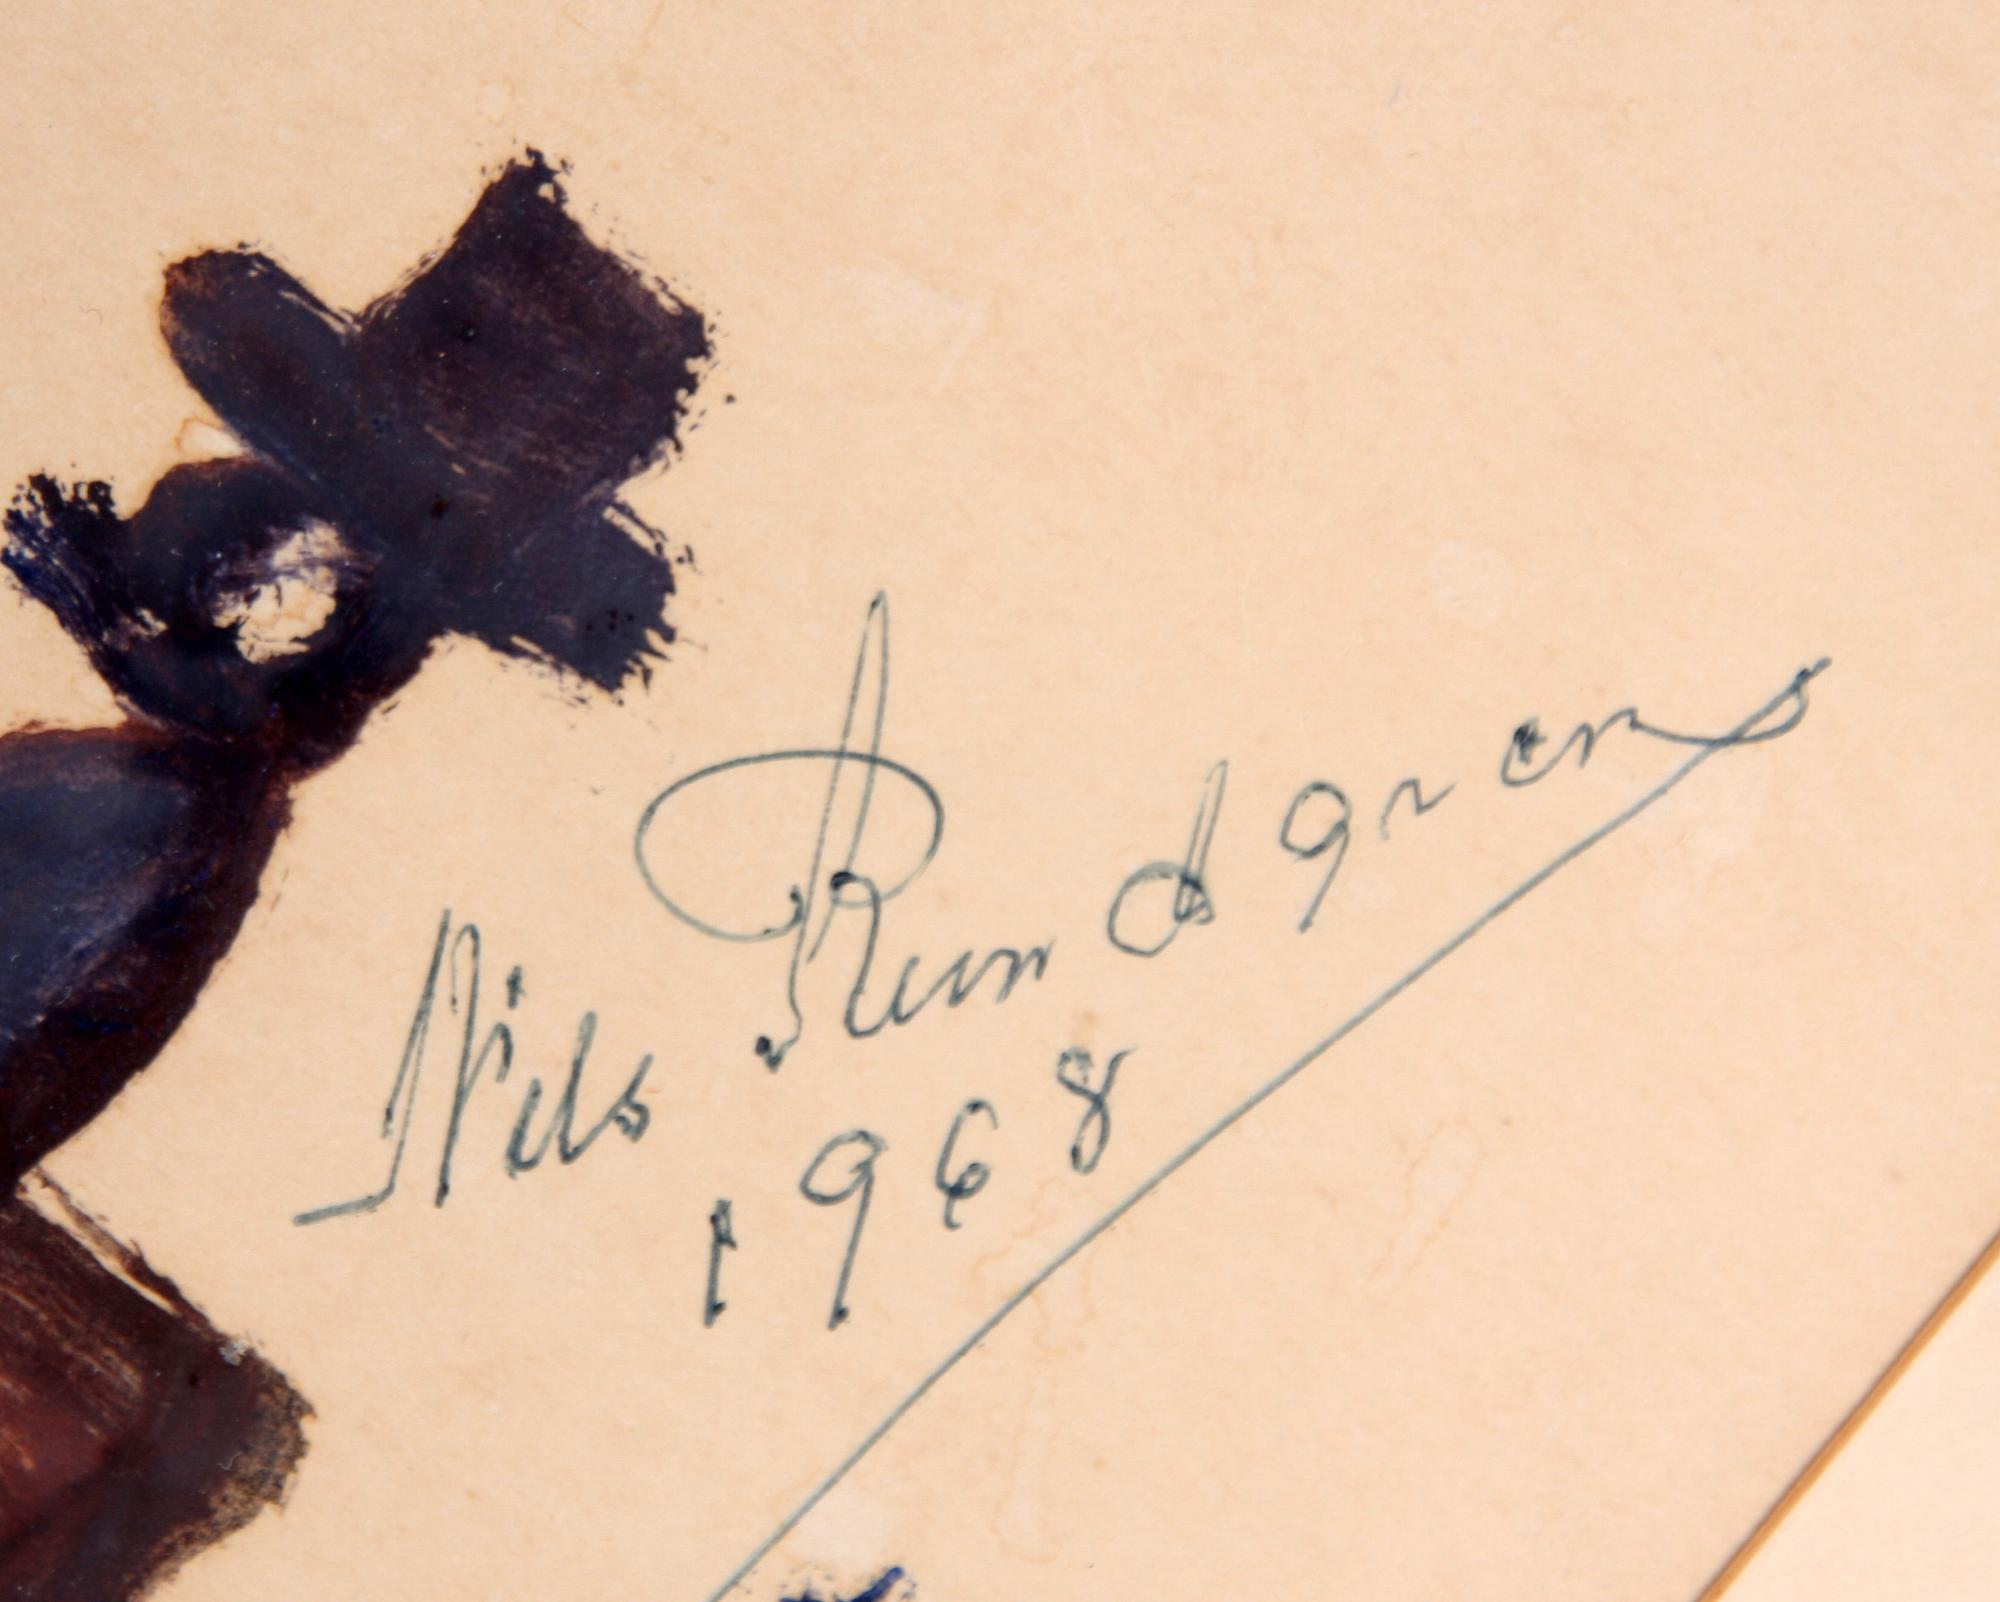 Nils Rundgren
1968